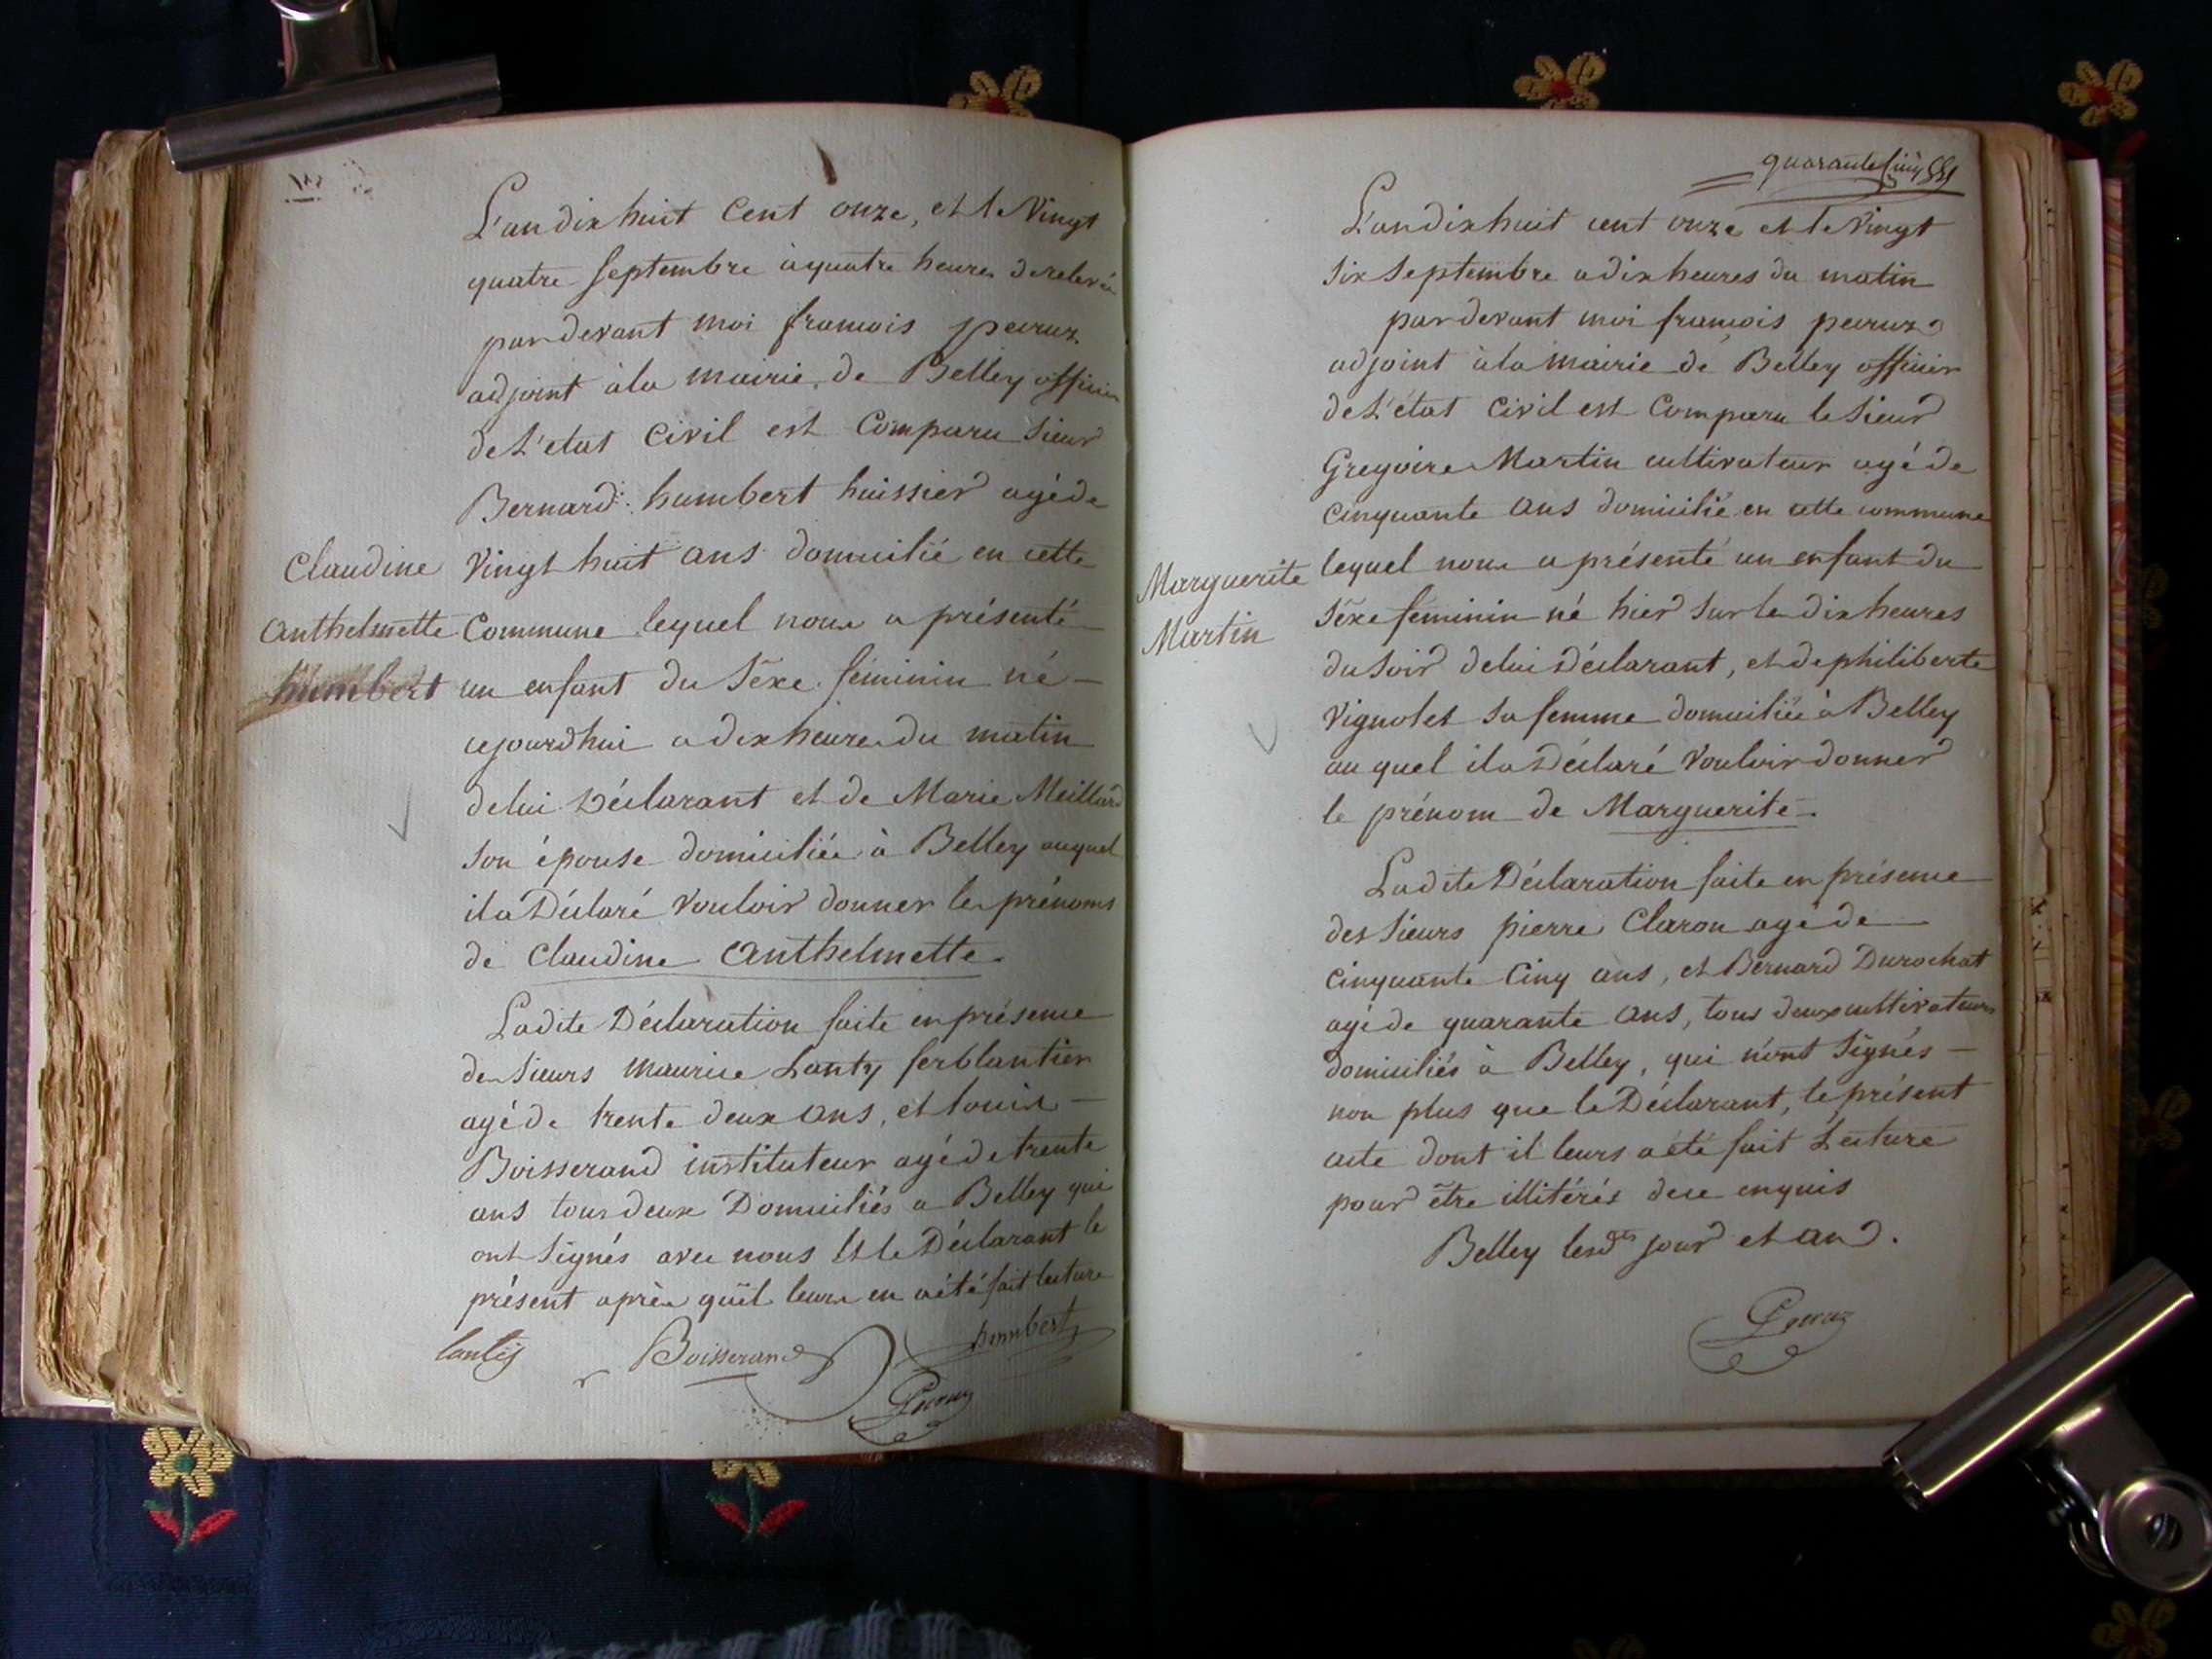 L'an dix huit Cent onze, et le Vingt
quatre Septembre à quatre heures de relevée
par devant moi francois peuruz
adjoint à la mairie de Belley officier
de L'etat Civil est Comparu Sieur
Bernard humbert huissier agé de
Claudine
Anthelmette
humbert
Vingt huit ans domicilié en cette
Commune lequel nous a présenté
un enfant du Séxe féminin né
aujourdhui a dix heures du matin
de lui Déclarant et de Marie Meillard
son épouse domiciliée à Belley auquel
il a Déclaré Vouloir donner les prénoms
de Claudine Anthelmette.
Ladite Déclaration faite en présence
des Sieurs maurice Lanty ferblantier
agé de trente deux ans, et louis
Boisserand instituteur agé de trente
ans tous deux Domiciliés a Belley qui
ont Signés avec nous et le Déclarant le
présent après qu'il leurs en a été fait lecture
lantij Boisserand humbert
quarante Cinq
L'an dix huit cent onze et le Vingt
Six Septembre a dix heures du matin
par devant moi francois peuruz
adjoint à la mairie de Belley officier
de L'état Civil est Comparu le Sieur
Gregoire Martin cultivateur agé de
cinquante ans domicilié en cette commune
Marguerite
Martin
lequel nous a présenté un enfant du
Séxe féminin né hier sur les dix heures
du Soir de lui Déclarant, et de philiberte
Vignolet sa femme domiciliée à Belley
au quel il a Déclaré Vouloir donner
le prénom de Marguerite.
Ladite Déclaration faite en présence
des Sieurs pierre Claron agé de
cinquante Cinq ans, et Bernard Durochat
agé de quarante ans, tous deux cultivateurs
domiciliés à Belley, qui n'ont Signés
non plus que le Déclarant, le présent
acte dont il leurs a été fait Lecture
pour être illitérés de ce enquis
Belley lesd.es jour et an.